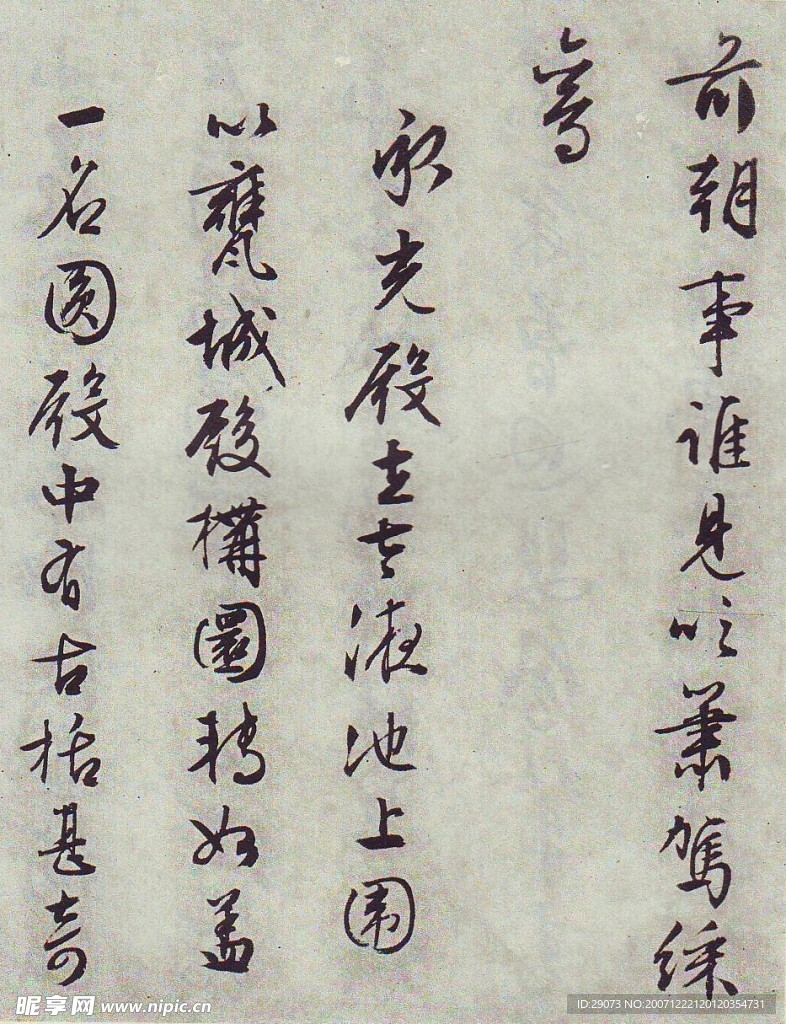 前朝事誰見吹簫駕綵
鸞
承光殿在太液池上围
以甕城殿構圜轉如蓋
一名圆殿中有古栝甚奇
昵享网 www.nipic.cn
ID:29073 NO:20071222120120354731